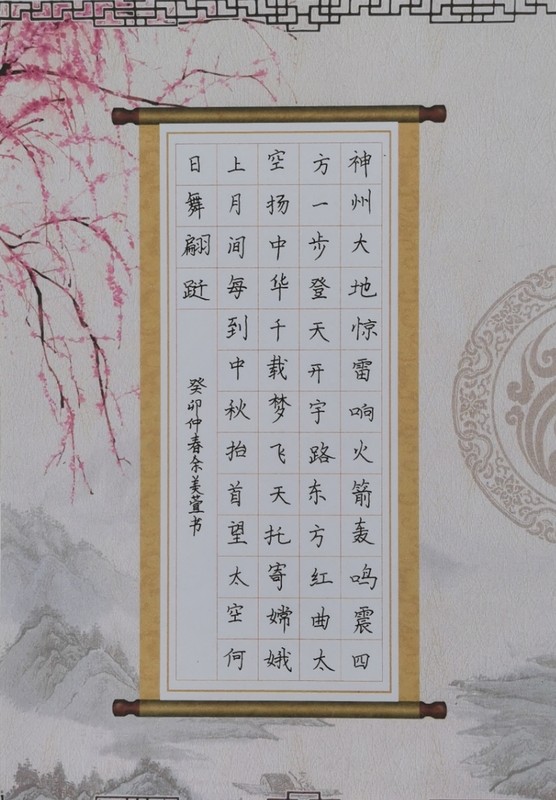 神州大地惊雷响火箭轰鸣震四
方一步登天开宇路东方红曲太
空扬中华千载梦飞天托寄嫦娥
上月间每到中秋抬首望太空何
日舞翩跹
癸卯仲春余美萱书